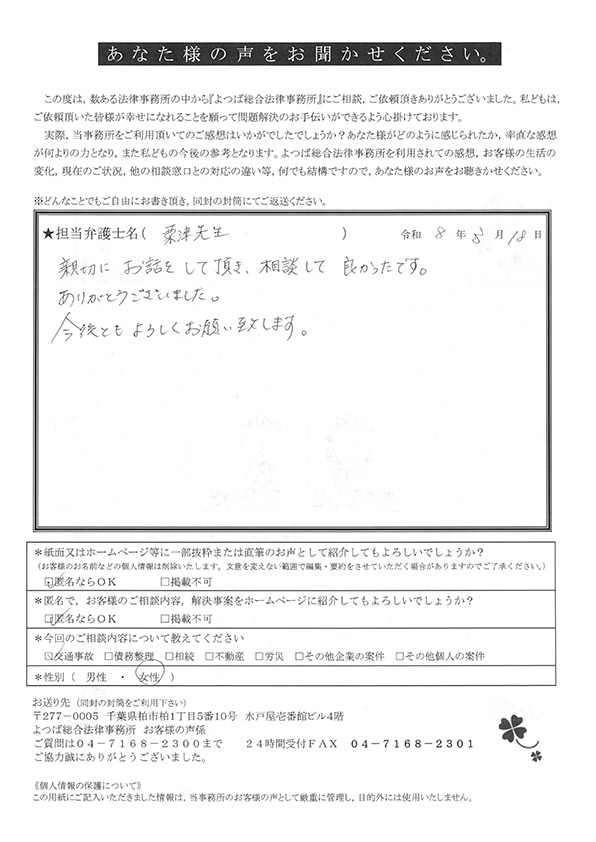 あなた様の声をお聞かせください。
この度は，数ある法律事務所の中から『よつば総合法律事務所』にご相談，ご依頼頂きありがとうございました。私どもは，
ご依頼頂いた皆様が幸せになれることを願って問題解決のお手伝いができるよう心掛けております。
実際，当事務所をご利用頂いてのご感想はいかがでしたでしょうか？あなた様がどのように感じられたか，率直な感想
が何よりの力となり，また私どもの今後の参考となります。よつば総合法律事務所を利用されての感想，お客様の生活の
変化，現在のご状況，他の相談窓口との対応の違い等，何でも結構ですので，あなた様のお声をお聴きかせください。
※どんなことでもご自由にお書き頂き，同封の封筒にてご返送ください。
★担当弁護士名（ 粟津先生 ） 令和 8 年 3 月 18 日
親切に お話をして頂き、相談して 良かったです。
ありがとうございました。
今後とも よろしくお願い致します。
＊紙面又はホームページ等に一部抜粋または直筆のお声として紹介してもよろしいでしょうか？
（お客様のお名前などの個人情報は削除いたします。文意を変えない範囲で編集・要約をさせていただく場合がありますのでご了承ください。）
☑匿名ならＯＫ □掲載不可
＊匿名で，お客様のご相談内容，解決事案をホームページに紹介してもよろしいでしょうか？
☑匿名ならＯＫ □掲載不可
＊今回のご相談内容について教えてください
☑交通事故 □債務整理 □相続 □不動産 □労災 □その他企業の案件 □その他個人の案件
＊性別（ 男性 ・ 女性 ）
お送り先（同封の封筒をご利用下さい）
〒277－0005 千葉県柏市柏1丁目5番10号 水戸屋壱番館ビル4階
よつば総合法律事務所 お客様の声係
ご質問は０４－７１６８－２３００まで ２４時間受付ＦＡＸ ０４－７１６８－２３０１
ご協力誠にありがとうございました。
《個人情報の保護について》
この用紙にご記入いただきました情報は，当事務所のお客様の声として厳重に管理し，目的外には使用いたしません。